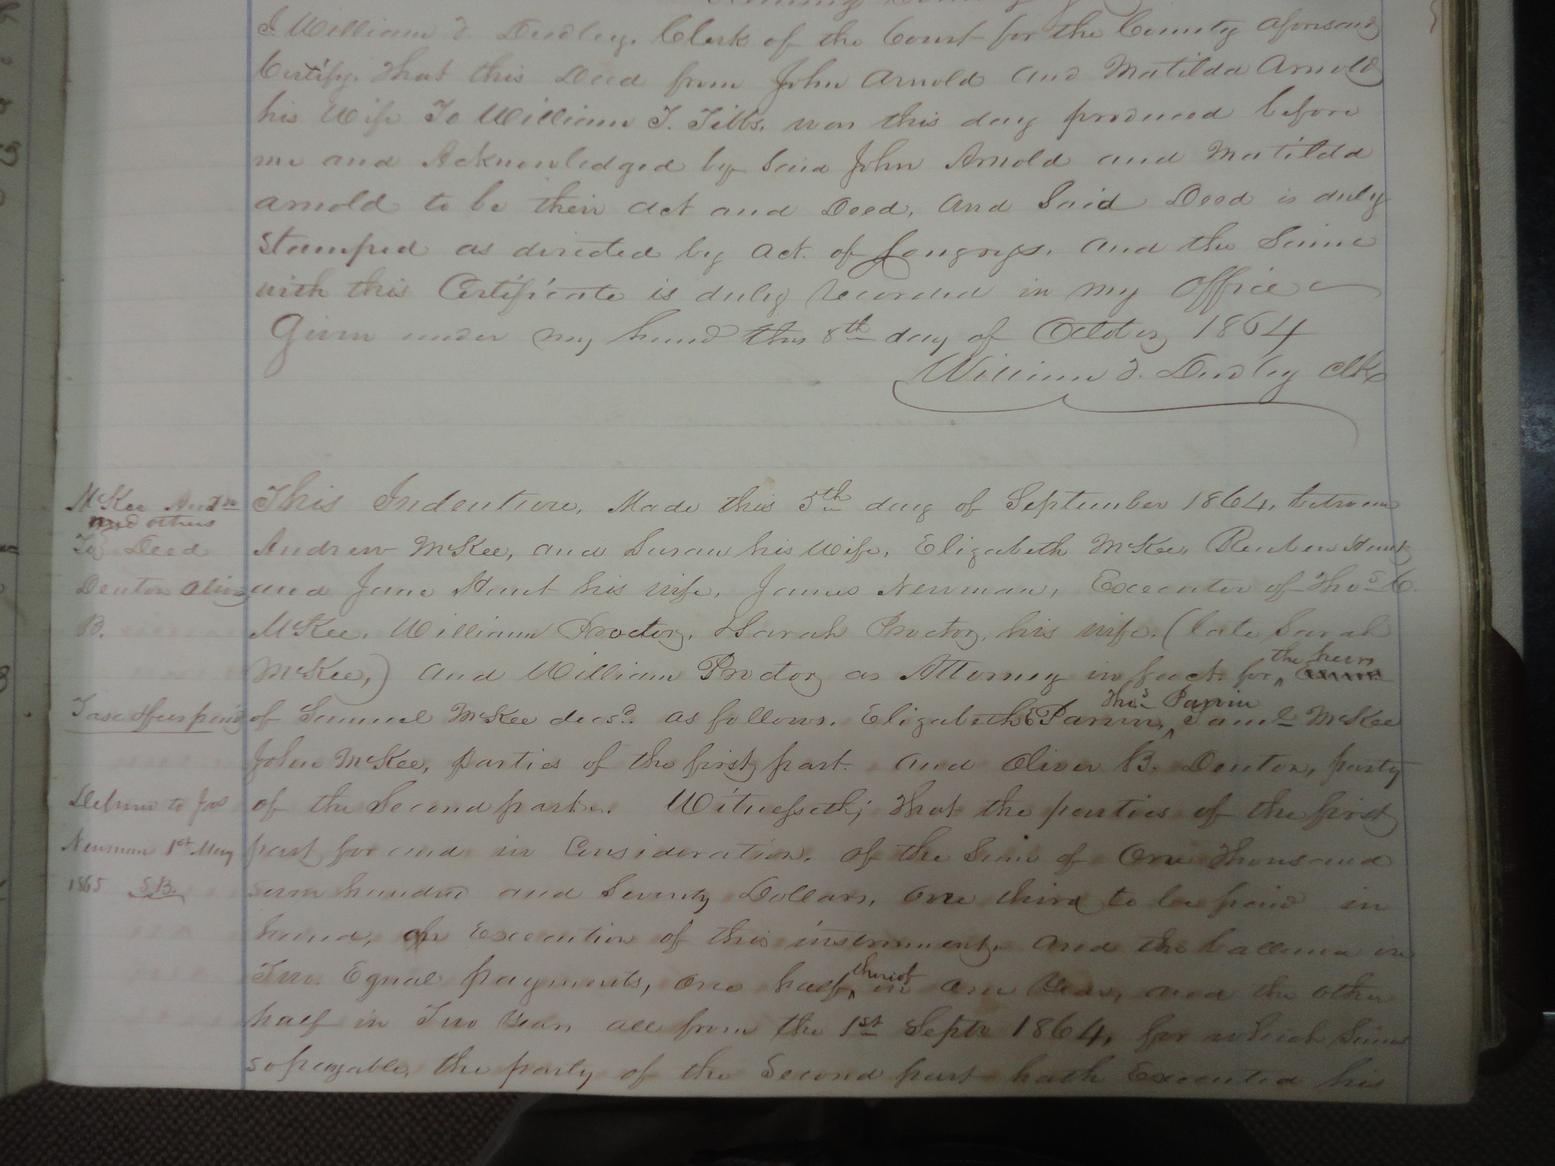 I William T. Dudley, Clerk of the Court for the County aforesaid
Certify, that this Deed from John Arnold and Matilda Arnold
his Wife To William T. Tibbs, was this day produced before
me and Acknowledged by Said John Arnold and Matilda
Arnold to be their act and Deed, And Said Deed is duly
Stamped as directed by act of Congress, and the Same
with this Certificate is duly recorded in my Office
Given under my hand this 8th day of October 1864
William T. Dudley Clk
McKee And.w
and others
To Deed
Denton Oliver
B.
Taxes & fees paid
Deliver to Jas
Newman 1st May
1865 S.B.
This Indenture, Made this 5th day of September 1864, between
Andrew McKee, and Susan his Wife, Elizabeth McKee, Reuben Hunt
and Jane Hunt his wife, James Newman, Executor of Thos
McKee, William Proctor, Sarah Proctor, his wife, (late Sarah
McKee,) and William Proctor as Attorney in fact for the heirs
of Samuel McKee decsd as follows, Elizabeth Parvin, Thos Parvin Saml McKee
John McKee, parties of the first part. and Oliver B. Denton, party
of the Second part. Witnesseth; that the parties of the first
part for and in Consideration, of the Sum of One Thousand
seven hundred and Seventy Dollars, one third to be paid in
hand, on Execution of this instrument, and the ballance in
Two Equal payments, one half thereof in one Year, and the other
half in Two Years all from the 1st Septr 1864, for which Sums
so payable, the party of the Second part hath Executed his